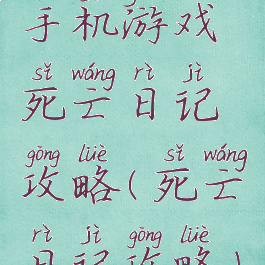 手机游戏
sǐ wáng rì jì
死亡日记
gōng lüè sǐ wáng
攻略(死亡
rì jì gōng lüè
日记攻略)